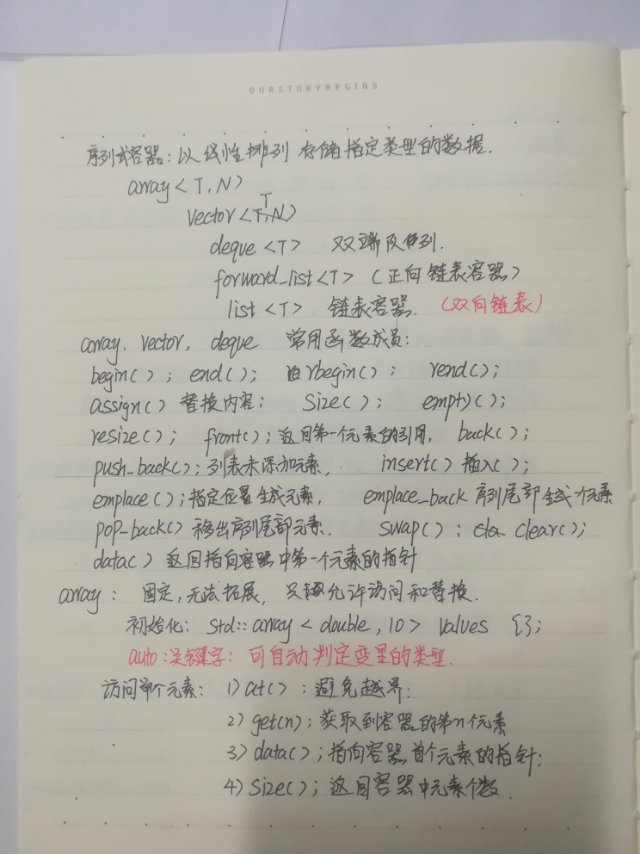 OURSTORYBEGINS
序列式容器：以线性排列 存储指定类型的数据.
array<T,N>
vector<T>
deque <T> 双端队列.
forward_list<T> (正向链表容器)
list <T> 链表容器. (双向链表)
array. vector. deque 常用函数成员:
begin(); end(); rbegin(); rend();
assign() 替换内容; size(); empty();
resize(); front(); 返回第一个元素的引用, back();
push_back(); 列表末添加元素, insert() 插入();
emplace(); 指定位置生成元素, emplace_back 序列尾部生成个元素
pop_back() 移出序列尾部元素. swap(); clear();
data() 返回指向容器中第一个元素的指针
array: 固定,无法拓展, 只允许访问和替换.
初始化: std::array<double, 10> values {};
auto:关键字: 可自动判定变量的类型.
访问单个元素: 1) at(): 避免越界:
2) get(n); 获取到容器的第n个元素
3) data(); 指向容器首个元素的指针;
4) size(); 返回容器中元素个数.